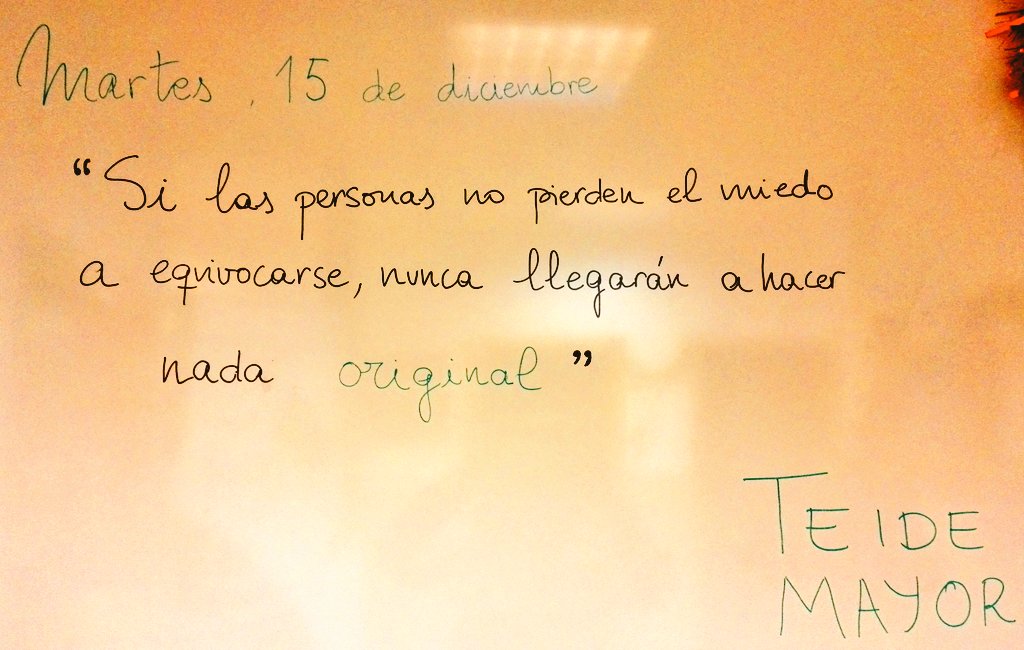 Martes, 15 de diciembre
“Si las personas no pierden el miedo
a equivocarse, nunca llegarán a hacer
nada original”
TEIDE
MAYOR